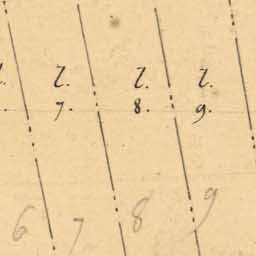 l. l. l.
7. 8. 9.
6 7 8 9